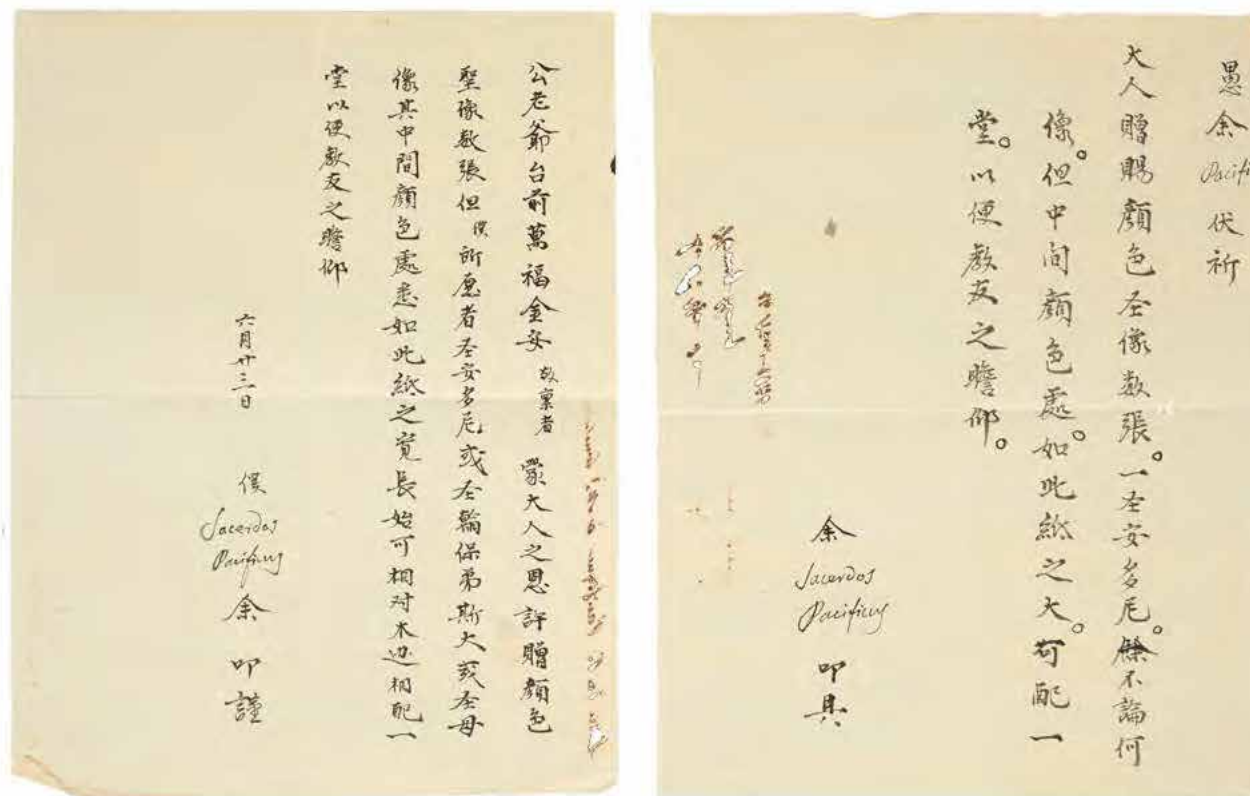 公老爺台前萬福金安 敬稟者 蒙大人之恩許贈顏色
聖像數張但僕所愿者圣安多尼或圣輪保弟斯大或圣母
像其中間顏色處悉如此紙之寬長始可相对木边相配一
堂以便教友之瞻仰
六月廿三日
僕 Sacerdos Pacificus 余叩謹
愚余 Pacifi 伏祈
大人贈賜顏色圣像数張。一圣安多尼。餘不論何
像。但中间顏色處。如此紙之大。苟配一
堂。以便教友之瞻仰。
余 Sacerdos Pacificus 叩具